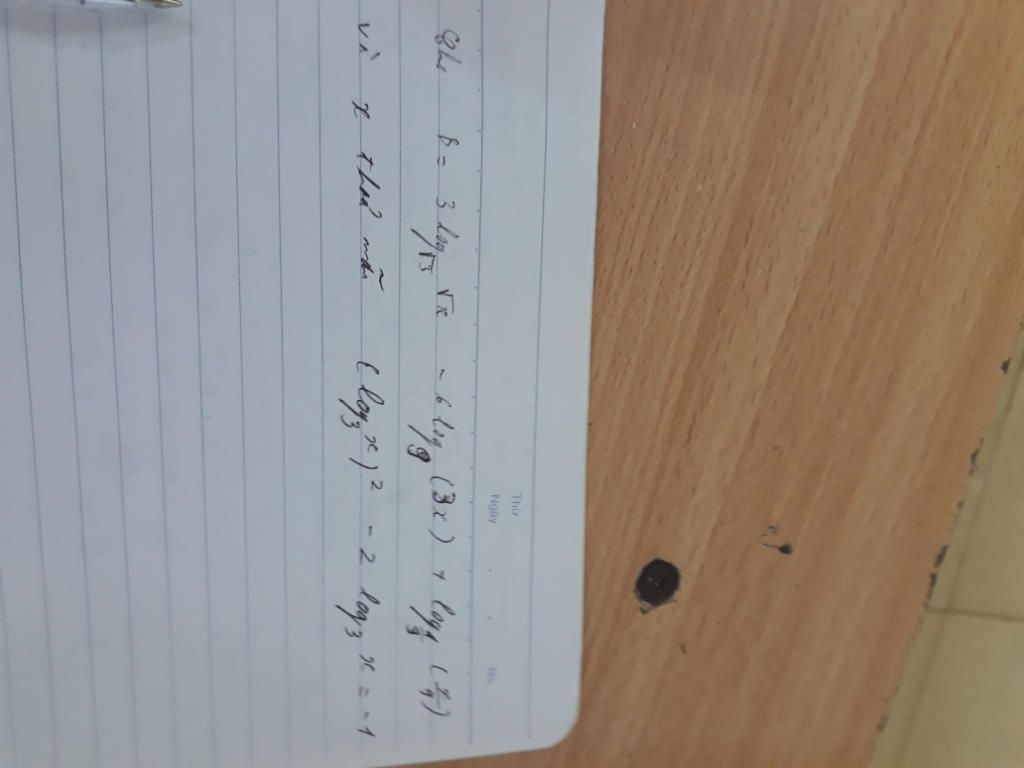 Thứ
Ngày . . No
Cho B = 3 log_{√3} √x - 6 log_9 (3x) + log_{1/3} (x/9)
vì x thoả mãn (log_3 x)^2 - 2 log_3 x = -1